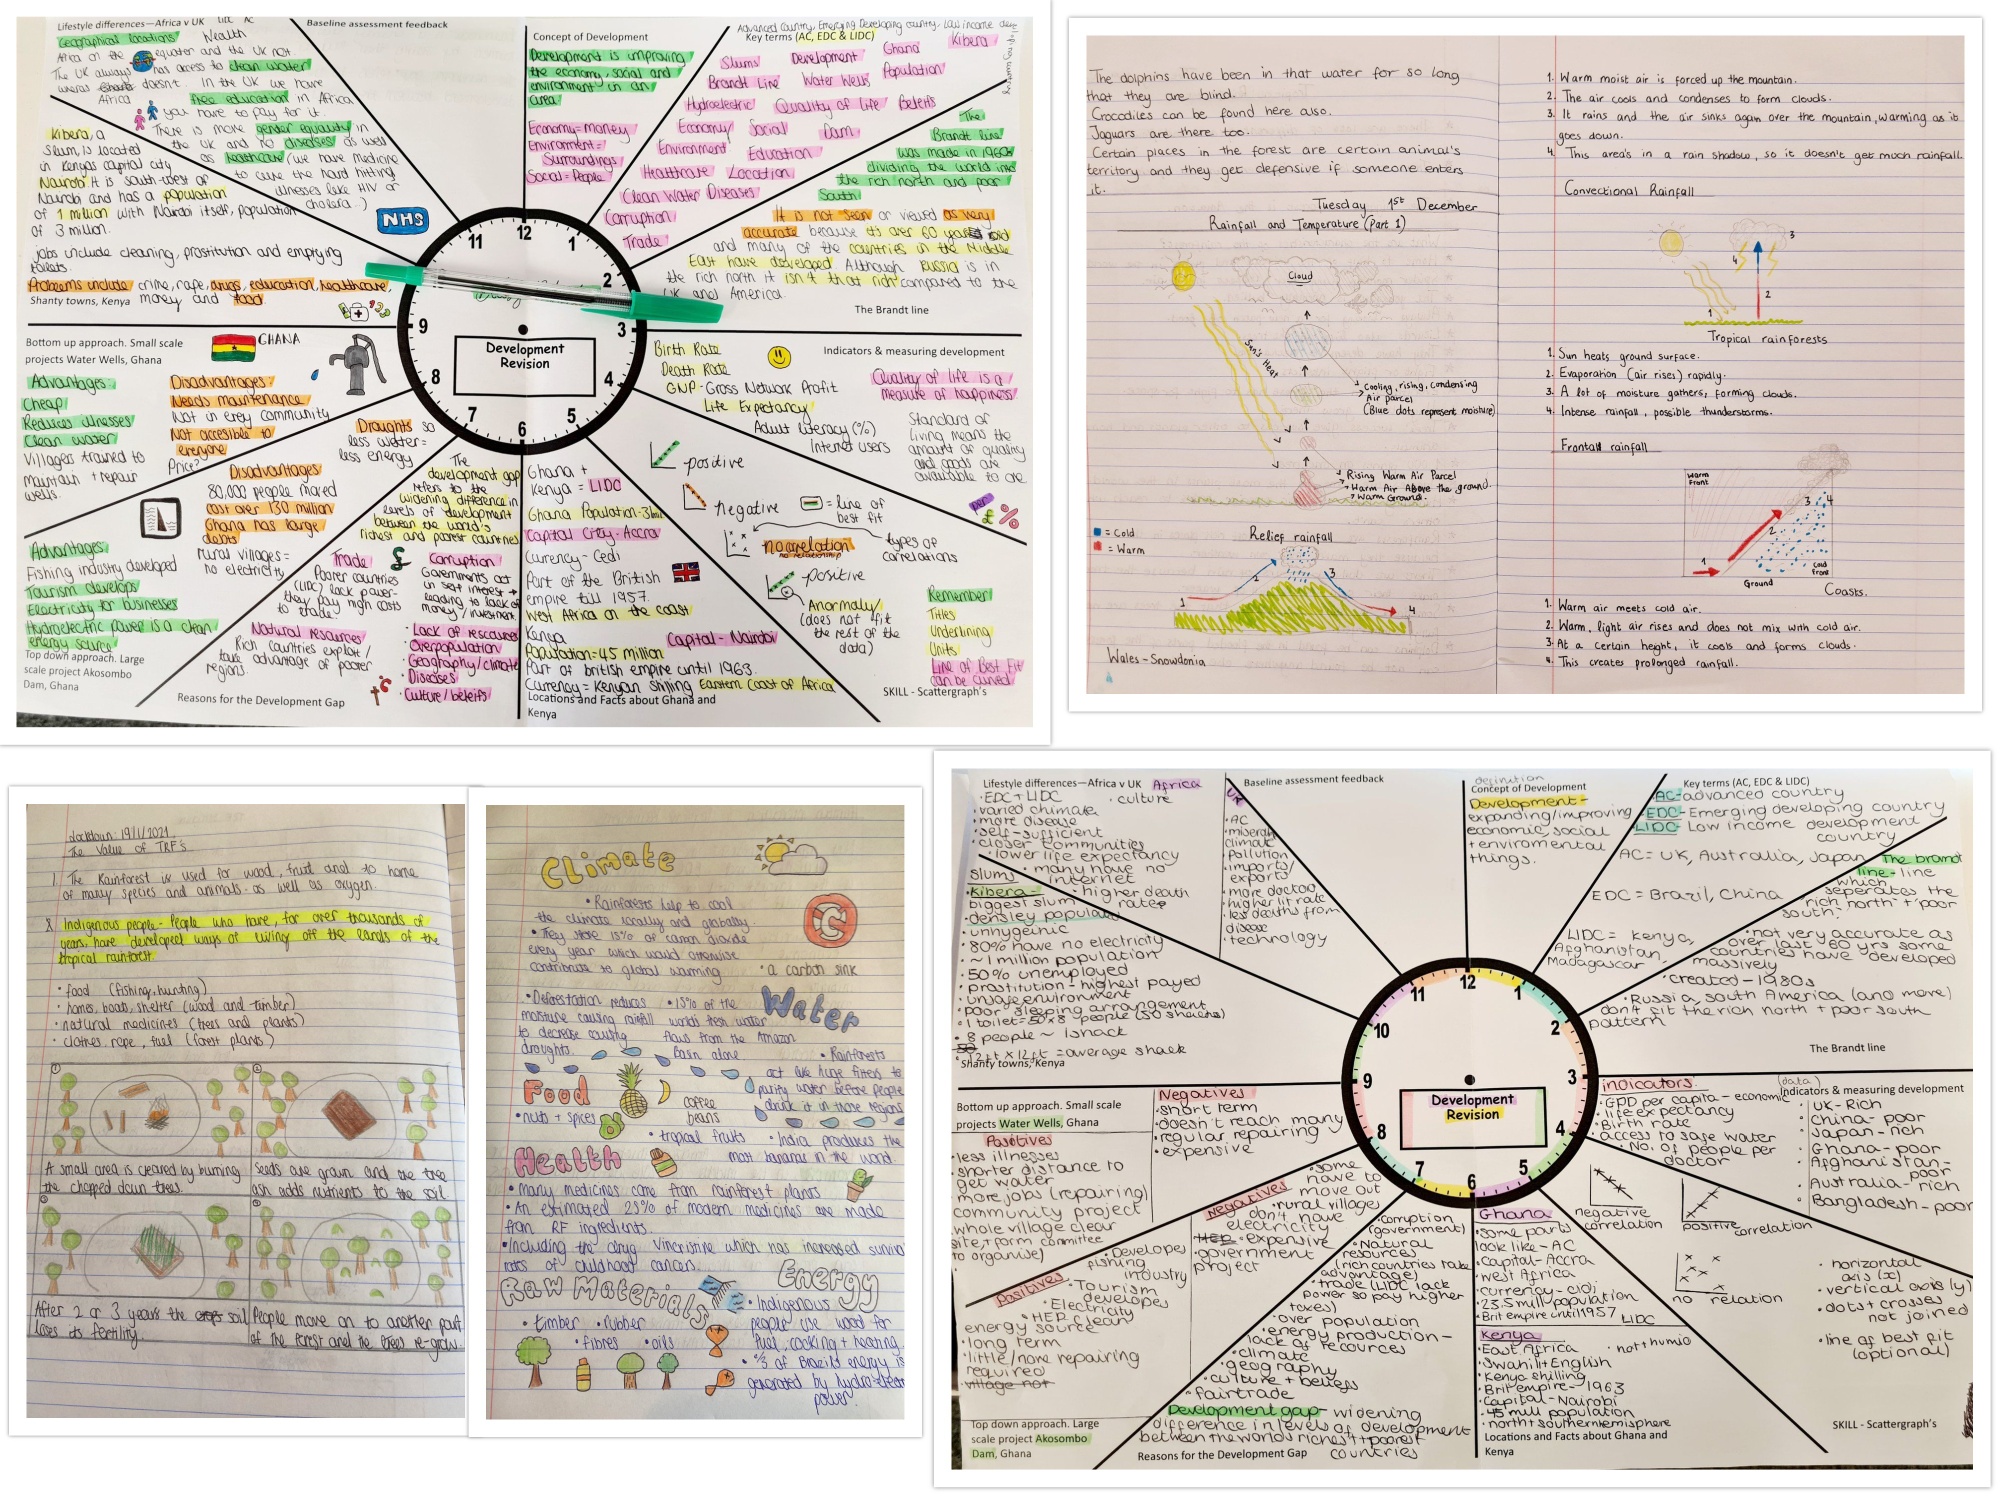 Lifestyle differences—Africa v UK
Geographical locations Wealth
Africa on the equator and the UK not.
The UK always has access to clean water
doesn't. In the UK we have
Africa free education in Africa
you have to pay for it.
There is more gender equality in
the UK and no diseases as well
as healthcare (we have medicine
to cure the hard hitting
illnesses like HIV or
cholera...)
NHS
Baseline assessment feedback
Concept of Development
Development is improving
the economy, social and
environment in an
area
Economy=money
Environment=
Surroundings
Social=People
Advanced country, Emerging Developing country, Low income
Key terms (AC, EDC & LIDC)
Slums Development Ghana Kibera
Brandt Line Water Wells Population
Hydroelectric Quality of life Beliefs
Economy Social Dam
Environment Education
Healthcare Location
Clean Water Diseases
Corruption
Trade
The
Brandt line
was made in 1960s
dividing the world into
the rich north and poor
South
It is not seen or viewed as very
accurate because its over 60 years old
and many of the countries in the Middle
East have developed Although Russia is in
the rich north it isn't that rich compared to the
UK and America.
The Brandt line
Kibera, a
Slum, is located
in Kenyas capital city
Nairobi It is south-west of
Nairobi and has a population
of 1 million with Nairobi itself, population
of 3 million.
jobs include cleaning, prostitution and emptying
toilets.
Problems include crime, rape, drugs, education, healthcare,
money and food
Shanty towns, Kenya
Bottom up approach. Small scale
projects Water Wells, Ghana
GHANA
Advantages:
Cheap
Reduces illnesses
Clean water
Villages trained to
maintain + repair
wells.
Disadvantages:
Needs maintenance
Not in every community
Not accesible to
everyone
Price?
Development
Revision
12
1
2
3
4
5
6
7
8
9
11
Birth Rate
Death Rate
GNP-Gross Network Profit
Life Expectancy
Adult literacy (%)
Internet users
Indicators & measuring development
Quality of life is a
measure of happiness
Standard of
living means the
amount of quality
and goods are
available to one
per
£ %
positive
negative
=line of
best fit
no correlation
no relationship
types of
correlations
positive
Anormaly/
(does not fit
the rest of the
data)
Remember:
Titles
Underlining
Units
Line of Best Fit
can be curved
SKILL - Scattergraph's
Ghana +
Kenya = LIDC
Capital City-Accra
Currency-Cedi
Part of the British
empire till 1957.
West Africa on the coast
Kenya
Capital-Nairobi
Population=45 million
Part of british empire until 1963.
Currency=Kenyan shilling Eastern Coast of Africa
Locations and Facts about Ghana and
Kenya
Droughts so
less water=
less energy
The
development gap
refers to the
widening difference in
levels of development
between the world's
richest and poorest countries
Trade £
Poorer countries
(LIDC) lack power-
they pay high costs
to trade.
Corruption
Governments act
in self interest→
leading to lack of
money/investment.
Natural resources
Rich countries exploit/
take advantage of poorer
regions.
· Lack of resources
Overpopulation
· Geography/climate
· Diseases
· Culture/beleifs
Reasons for the Development Gap
Disadvantages
80,000 people moved
cost over 130 million
Ghana has large
debts
rural villages=
no electricity
Advantages:
Fishing industry developed
Tourism develops
Electricity for businesses
Hydroelectric power is a clean
energy source
Top down approach. Large
scale project Akosombo
Dam, Ghana
The dolphins have been in that water for so long
that they are blind.
Crocodiles can be found here also.
Jaguars are there too.
Certain places in the forest are certain animal's
territory and they get defensive if someone enters
it.
Tuesday 1st December
Rainfall and Temperature (Part 1)
Cloud
Sun's Heat
Cooling, rising, condensing
Air parcel
(Blue dots represent moisture)
Rising Warm Air Parcel
Warm Air Above the ground.
Warm Ground.
= Cold
= Warm
Relief rainfall
1
2
3
4
Wales-Snowdonia
1. Warm moist air is forced up the mountain.
2. The air cools and condenses to form clouds.
3. It rains and the air sinks again over the mountain, warming as it
goes down.
4. This area's in a rain shadow, so it doesn't get much rainfall.
Convectional Rainfall
1
2
3
4
Tropical rainforests
1. Sun heats ground surface.
2. Evaporation (air rises) rapidly.
3. A lot of moisture gathers, forming clouds.
4. Intense rainfall, possible thunderstorms.
Frontal rainfall
Warm
front
1
2
3
4
Ground
Cold
front
Coasts.
1. Warm air meets cold air.
2. Warm, light air rises and does not mix with cold air.
3. At a certain height, it cools and forms clouds.
4. This creates prolonged rainfall.
Lockdown: 19/1/2021
The Value of TRF's
1. The Rainforest is used for wood, fruit and to home
of many species and animals. as well as oxygen.
Indigenous people- People who have, for over thousands of
years, have developed ways of living off the lands of the
tropical rainforest.
· food (fishing, hunting)
· homes, boats, shelter (wood and timber)
· natural medicines (trees and plants)
· clothes, rope, fuel (forest plants)
A small area is cleared by burning
the chopped down trees.
Seeds are grown and the tree
ash adds nutrients to the soil.
After 2 or 3 years the soil
loses its fertility.
People move on to another part
of the forest and the trees re-grow.
Climate
· Rainforests help to cool
the climate locally and globally.
· They store 15% of carbon dioxide
every year which would otherwise
contribute to global warming
C
· a carbon sink
· Deforestation reduces
moisture causing rainfall
to decrease causing
droughts.
· 15% of the
worlds fresh water
flows from the Amazon
Basin alone.
Water
· Rainforests
act like huge filters to
purify water before people
drink it in those regions
Food
· nuts + spices
coffee
beans
· tropical fruits
· India produces the
most bananas in the world.
Health
· Many medicines come from rainforest plants
· An estimated 25% of modern medicines are made
from RF ingredients.
· Including the drug Vincristine which has increased survival
rates of childhood cancers.
Raw Materials
· timber · rubber
· fibres · oils
Energy
· Indigenous
people use wood for
fuel, cooking + heating.
· 2/3 of Brazils energy is
generated by hydro-electric
power.
Lifestyle differences—Africa v UK Africa
·EDC+LIDC · culture
·varied climate
·more disease
·self-sufficient
·closer communities
·lower life expectancy
· many have no
internet
· higher death
rates
UK
·AC
·miserable
climate
·pollution
·imports/
exports
·more doctors
·higher lit rate
·less deaths from
disease
·technology
Baseline assessment feedback
definition
Concept of Development
Development-
expanding/improving
economic, social
+enviromental
things.
Key terms (AC, EDC & LIDC)
AC-advanced country
EDC-Emerging developing country
LIDC-Low income development
country
AC=UK, Australia, Japan
EDC=Brazil, China
LIDC= Kenya,
Afghanistan,
Madagascar
The brandt
line-line
which
seperates the
rich north + poor
south.
·not very accurate as
over last 60 yrs some
countries have developed
massively
·created-1980s
·Russia, south America (and more)
don't fit the rich north + poor south
pattern
The Brandt line
slums
·Kibera-
biggest slum
·densley populated
·unhygeinic
·80% have no electricity
·~1 million population
·50% unemployed
·prostitution-highest payed
·unsafe environment
·poor sleeping arrangement
·8 people ~ 1 shack
·12ft x 12ft =average shack
Shanty towns, Kenya
Bottom up approach. Small scale
projects Water Wells, Ghana
Positives
·less illnesses
·shorter distance to
get water
more jobs (repairing)
community project
whole village clear
site+form committee
to organise)
Negatives
·short term
·doesn't reach many
·regular repairing
·expensive
Development
Revision
12
1
2
3
4
5
6
7
8
9
10
11
indicators (data)
Indicators & measuring development
·GPD per capita-economic
·life expectancy
·Birth rate
·access to safe water
·No. of people per
doctor
·UK-Rich
·China-poor
·Japan-rich
·Ghana-poor
·Afghanistan-
poor
·Australia-rich
·Bangladesh-poor
negative
correlation
positive correlation
no relation
·horizontal
axis (x)
·vertical axis (y)
·dots+crosses
not joined
·line of best fit
(optional)
SKILL - Scattergraph's
Ghana
·some parts
look like-AC
·capital-Accra
·west Africa
·currency-cidi
·23.5mill population
·Brit empire until 1957 LIDC
Kenya
·East Africa
·Swahili+English
·Kenya shilling
·Brit empire-1963
·Capital-Nairobi
·45 mill population
·north+southern hemisphere
·hot+humid
Locations and Facts about Ghana and
Kenya
·corruption
(government)
·Natural
resources
(rich countries take
advantage)
·trade (LIDC lack
power so pay higher
taxes)
·over population
·energy production-
lack of resources
·climate
·geography
·culture + beliefs
·fairtrade
Development gap- widening
difference in levels of development
between the worlds richest+poorest
countries
Reasons for the Development Gap
Negatives
·some
have to
move out
·rural villages
don't have
electricity
HEP ·expensive
·government
project
Positives
·Developes
fishing
industry
·Tourism
developes
·Electricity
·HEP clean
energy source
·long term
·little/none repairing
required
village not
Top down approach. Large
scale project Akosombo
Dam, Ghana